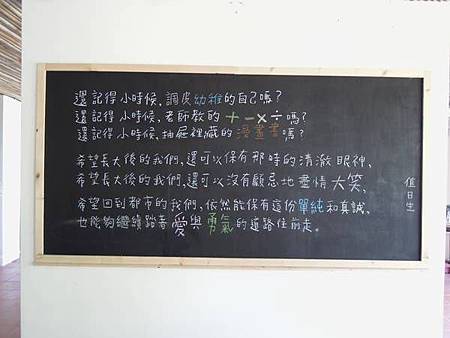 還記得小時候,調皮幼稚的自己嗎?
還記得小時候,老師教的+-×÷嗎?
還記得小時候,抽屜裡藏的漫畫書嗎?
希望長大後的我們,還可以保有那時的清澈眼神、
希望長大後的我們,還可以沒有顧忌地盡情大笑、
希望回到都市的我們,依然能保有這份單純和真誠、
也能夠繼續踏著愛與勇氣的道路往前走。
值日生